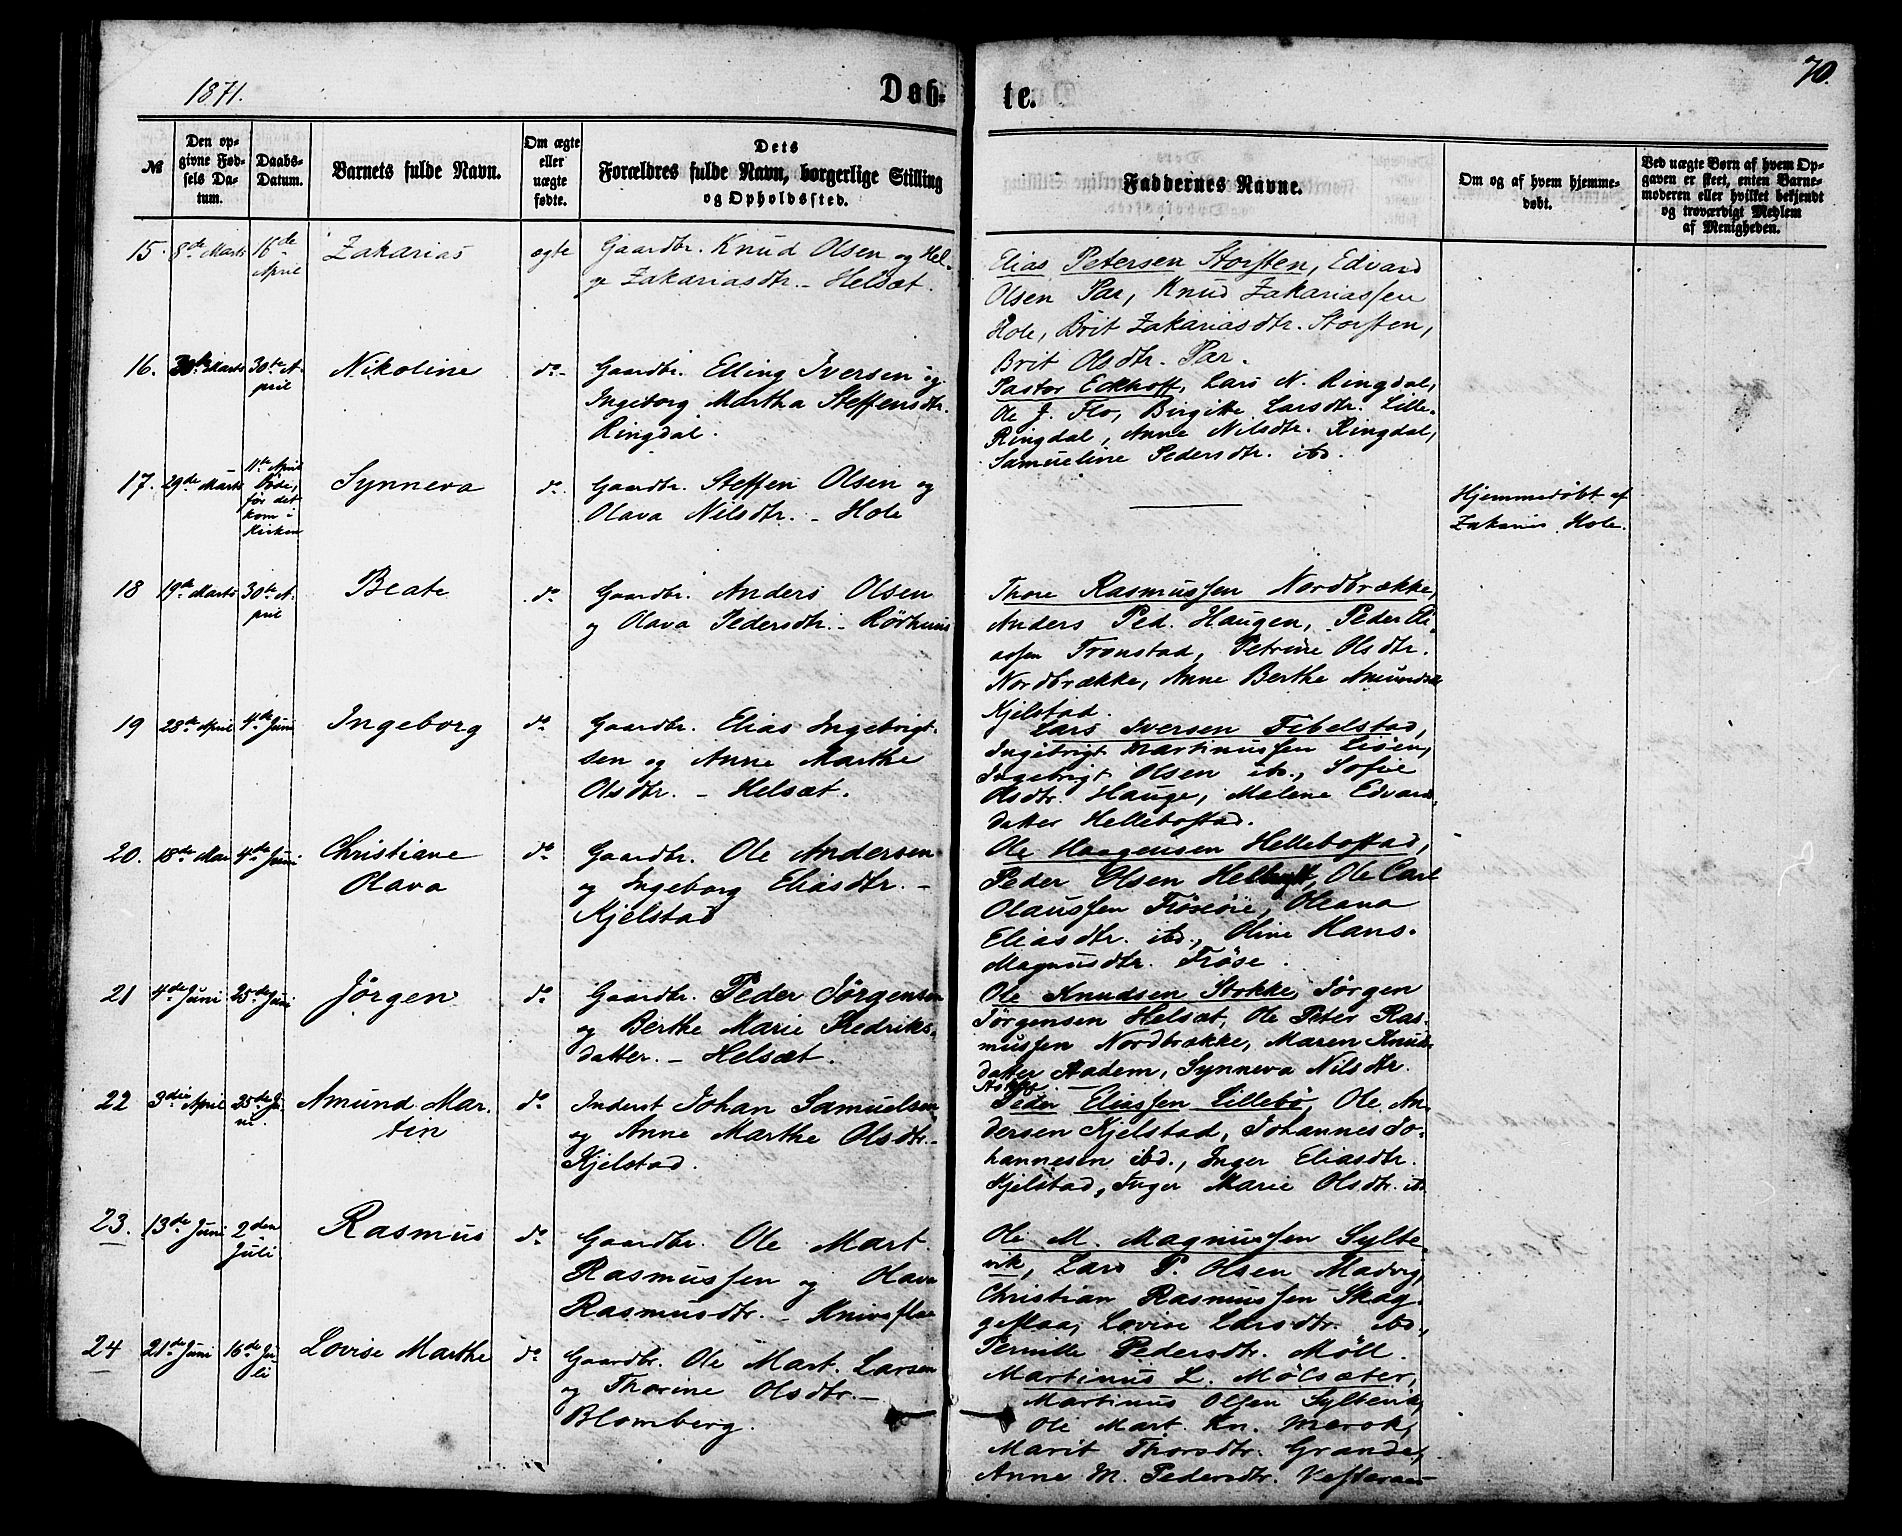 1871.
Døb-
te.
70.
№
Den opgivne Fødsels Datum.
Daabs-Datum.
Barnets fulde Navn.
Om ægte eller uægte fødte.
Dets Forældres fulde Navn, borgerlige Stilling og Opholdssted.
Faddernes Navne.
Om og af hvem hjemmedøbt.
Ved uægte Børn af hvem Opgaven er skeet, enten Barnemoderen eller hvilket bekjendt og troværdigt Medlem af Menigheden.
15. 8de Marts 16de April Zakarias ægte Gaardbr. Knud Olsen og Hel-
ge Zakariasdtr. - Helsæt.
Elias Petersen Storsten, Edvard
Olsen Par, Knud Zakariassen
Hole, Brit Zakariasdtr. Storsten,
Brit Olsdtr. Par.
16. 30te Marts 30te April Nikoline do- Gaardbr. Elling Iversen og
Ingeborg Martha Steffensdtr.
Ringdal.
Pastor Eckhoff, Lars N. Ringdal,
Ole J. Flo, Birgitte Larsdtr. Lille-
Ringdal, Anne Nilsdtr. Ringdal,
Samueline Pedersdtr. ibd.
17. 29de Marts 11te April Døde, før det kom i Kirken Synneva do. Gaardbr. Steffen Olsen og
Olava Nilsdtr. - Hole
Hjemmedøbt af
Zakarias Hole.
18 19de Marts 30te April Beate do. Gaardbr. Anders Olsen
og Olava Pedersdtr. - Rørhuus
Thore Rasmussen Nordbrække,
Anders Ped. Haugen, Peder Eli-
assen Tronstad, Petrine Olsdtr.
Nordbrække, Anne Berthe Amundsdtr
Kjelstad.
19 28de April 4de Juni Ingeborg do Gaardbr. Elias Ingebrigt-
sen og Anne Marthe
Olsdtr. - Helsæt.
Lars Iversen Fibelstad,
Ingebrigt Martinussen Liøen,
Ingebrigt Olsen ibd., Sofie
Olsdtr. Hauge, Malene Edvards-
datter Hellebostad.
20. 18de Mai 4de Juni Christiane
Olava do Gaardbr. Ole Andersen
og Ingeborg Eliasdtr. -
Kjelstad
Ole Haagensen Hellebostad,
Peder Olsen, Ole Carl
Olaussen Frøsøie, Oleana
Eliasdtr. ibd., Oline Hans-
Magnusdtr. Frøse.
21 4de Juni 25de Juni Jørgen do Gaardbr. Peder Jørgensen
og Berthe Marie Fredriks-
datter. - Helsæt.
Ole Knudsen Stokke, Jørgen
Jørgensen Helsæt, Ole Peter Ras-
mussen Nordbrække, Maren Knuds-
datter Aadem, Synneva Nilsdtr.
Stokke
22 3die April 25de Juni Amund Mar-
tin do Inderst Johan Samuelsen
og Anne Marthe Olsdtr. -
Kjelstad.
Peder Eliassen Lillebø, Ole An-
dersen Kjelstad, Johannes Jo-
hannesen ibd., Inger Eliasdtr.
Kjelstad, Inger Marie Olsdtr. ibd
23. 13de Juni 2den Juli Rasmus do Gaardbr. Ole Mart.
Rasmussen og Olava
Rasmusdtr. - Knivsflaa
Ole M. Magnussen Sylte-
vik, Lars P. Olsen Madvig,
Christian Rasmussen Skag-
geflaa, Lovise Larsdtr. ibd.,
Pernille Pedersdtr. Möll.
24 21de Juni 16de Juli Lovise Marthe do Gaardbr. Ole Mart. Larsen
og Thorine Olsdtr. -
Blomberg.
Martinus L. Mölsæter,
Martinus Olsen Syltevik,
Ole Mart. Kn. Merok,
Marit Thorsdtr. Grande,
Anne M. Pedersdtr. Vesteraas